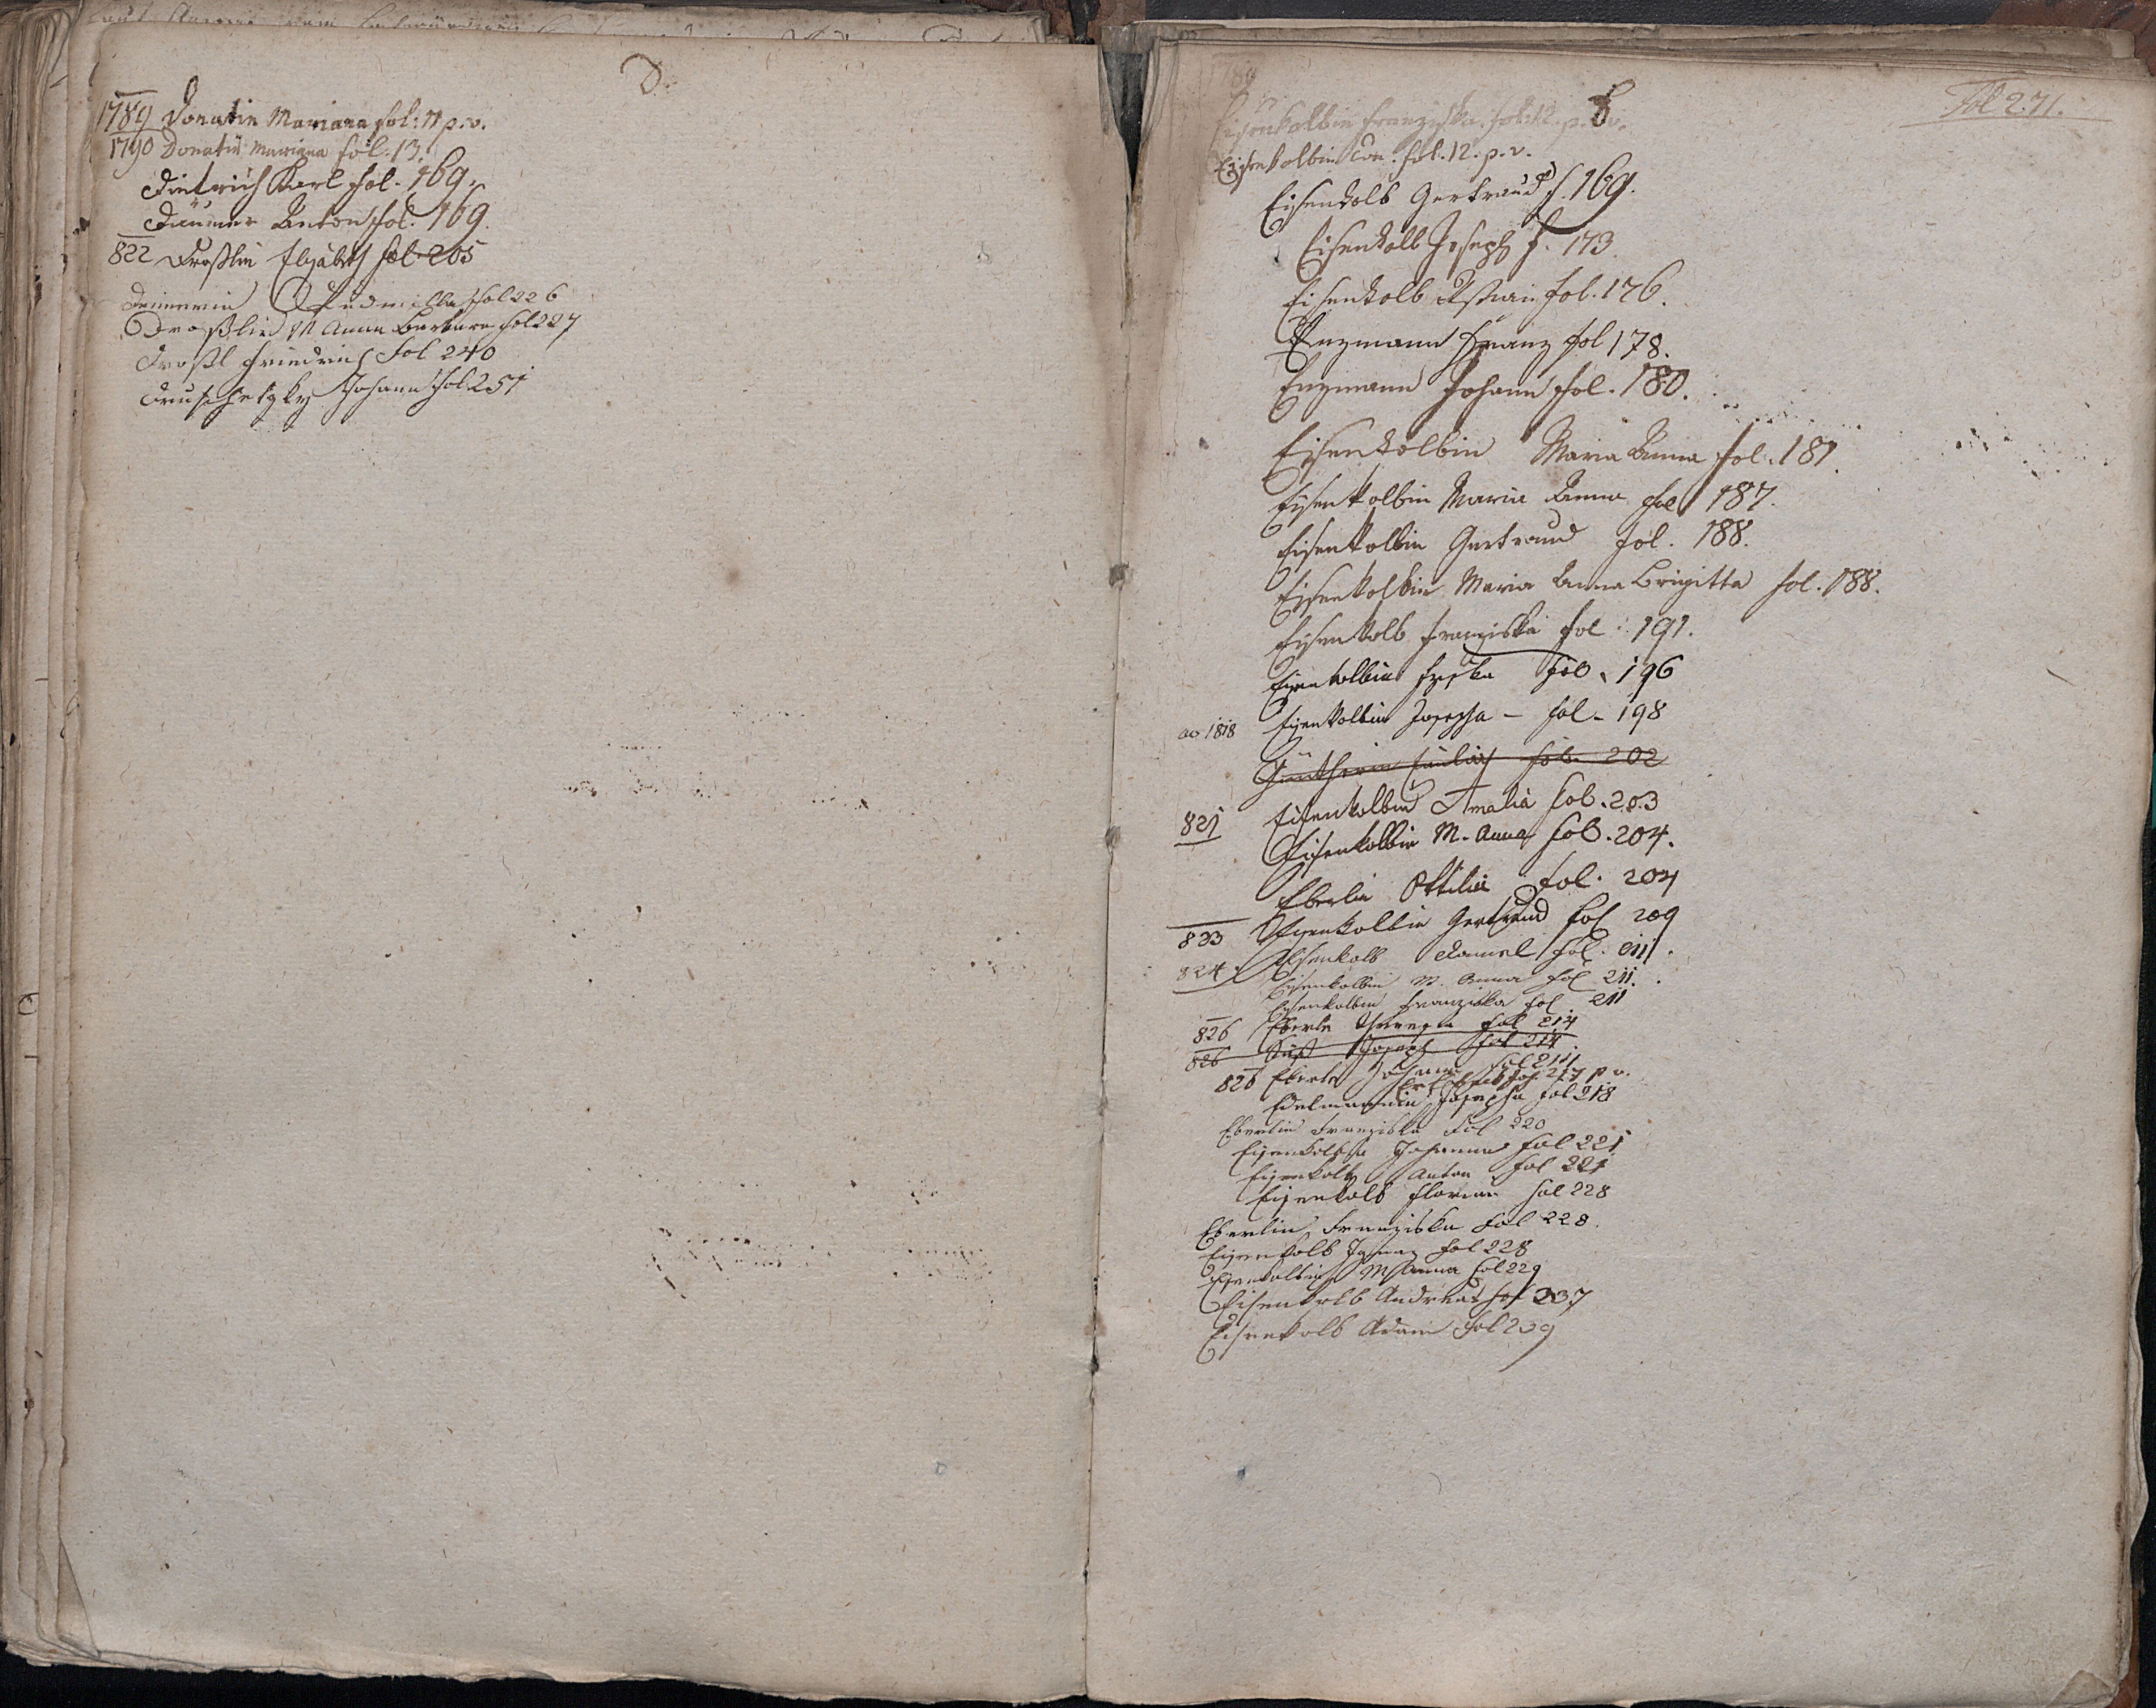 D.
1789 Donatin Mariana fol: 11 p. v.
1790 Donatin Mariana fol: 13.
Dietrich Karl fol. 169.
Anton fol. 169.
822 Droßlin Elisabeth fol 205
Ludmilla fol 226
Droßlin M Anna Barbara fol 227
Droßl Friedrich Fol 240
Druschetzky Johann fol 251
Fol 271.
1789
E
Eisenkolbin Franziska. fol. 12. p. v.
Eisenkolbin fol. 12. p. v.
Eisenkolb Gertraud f. 169.
Eisenkolb Joseph f. 173.
Eisenkolb fol. 176.
Enzmann Franz fol 178.
Enzmann Johann fol. 180.
Eisenkolbin Maria Anna fol. 181.
Eisenkolbin Maria Anna fol 187.
Eisenkolbin Gertraud fol. 188.
Eisenkolbin Maria Anna Brigitta fol. 188.
Eisenkolb Franziska fol: 191.
Eisenkolbin fol. 196
ao 1818 Eisenkolbin Josepha – fol – 198
Güntherin fol. 202
821 Eisenkolbin Amalia fol. 203
Eisenkolbin M. Anna fol. 204.
Eberlin Ottilia fol. 204
823 Eisenkolbin Gertraud fol 209
824. Eisenkolb fol. 211.
Eisenkolbin M. Anna fol 211.
Eisenkolbin Franziska fol 211
826 Eberle Theresia fol 214
826 Süß Joseph fol 214
826 Eberle Johann fol 214
fol. 217 p v.
Edelmannin Josepha fol 218
Eberlin Franziska Fol 220
Johanna fol 221
Eisenkolb Anton fol 221
Eisenkolb Florian fol 228
Eberlin Franziska fol 228.
Eisenkolb Ignaz fol 228
Eisenkolbin M Anna fol 229
Eisenkolb Andreas fol 237
Eisenkolb Adam fol 239